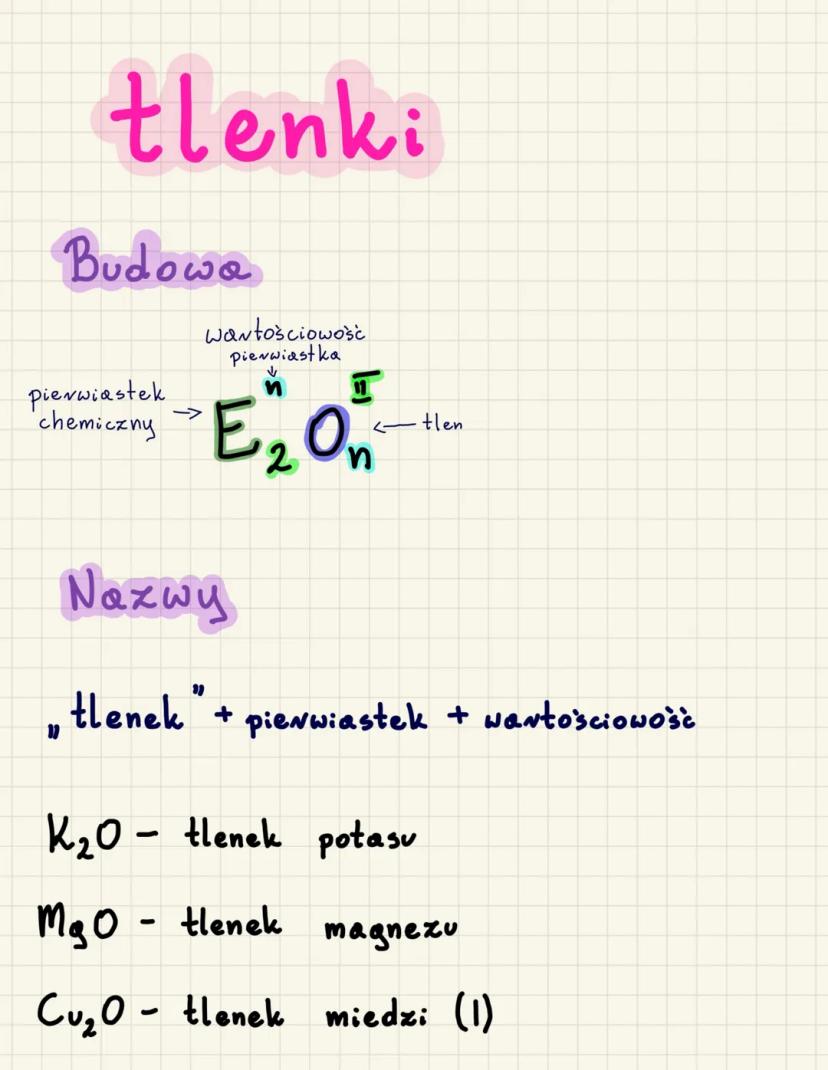 tlenki
Budowa
wartościowość
pierwiastka
pierwiastek
chemiczny → E₂ⁿOₙᴵᴵ ← tlen
Nazwy
„tlenek” + pierwiastek + wartościowość
K₂O - tlenek potasu
MgO - tlenek magnezu
Cu₂O - tlenek miedzi (I)